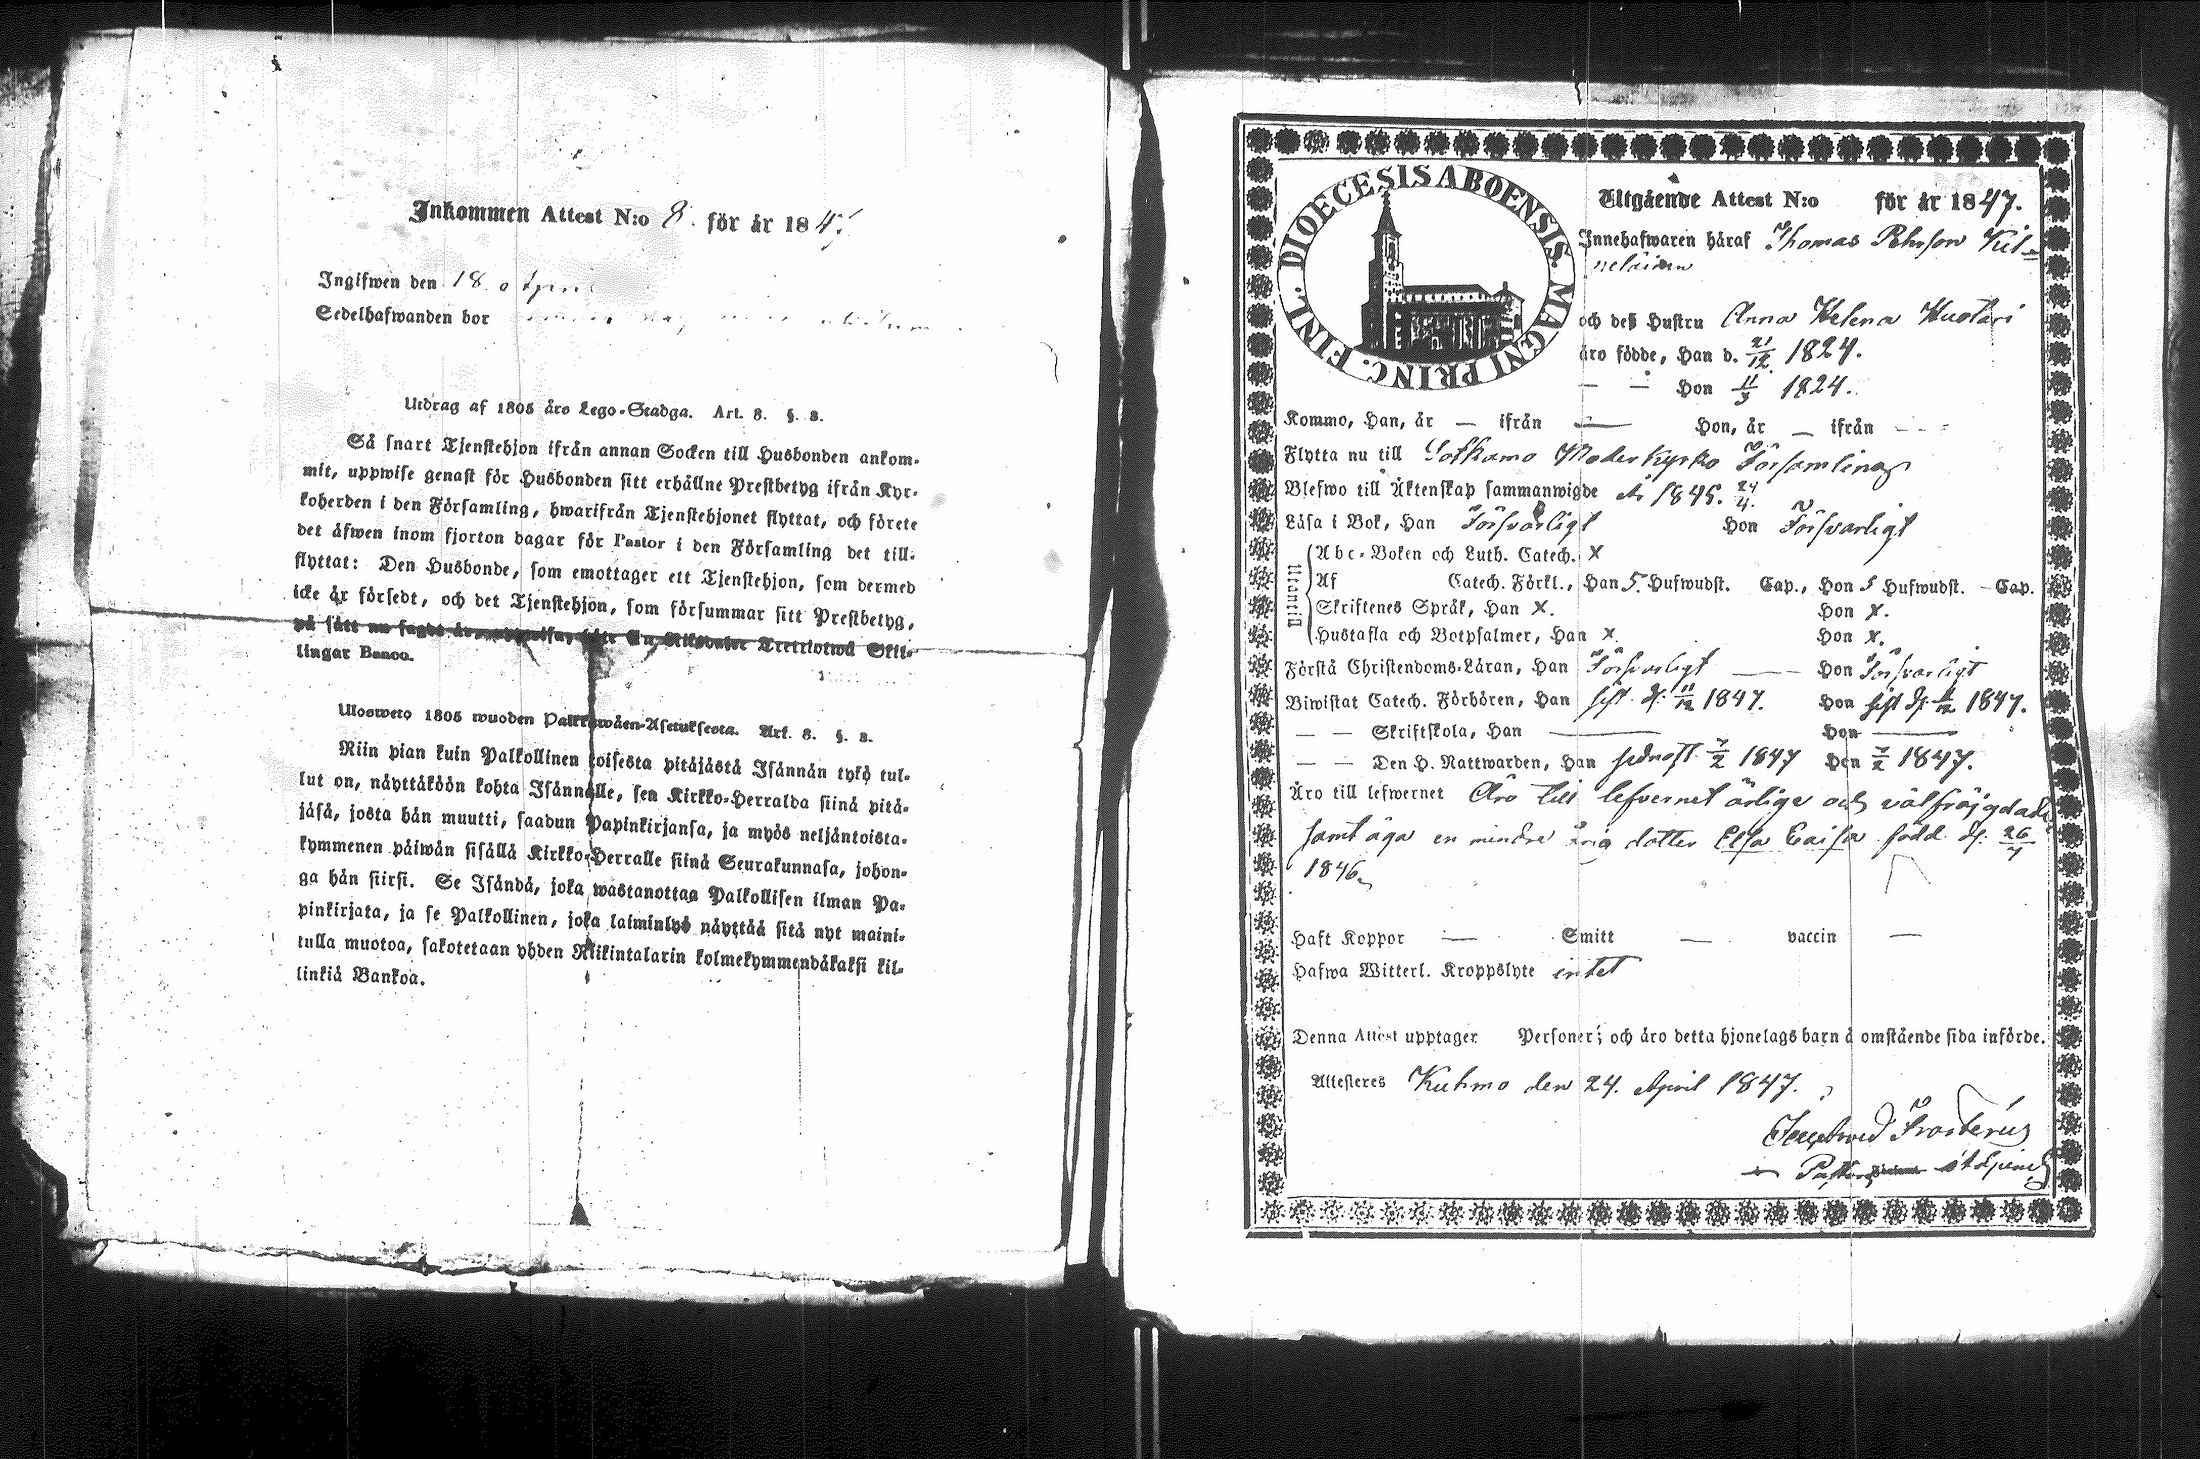 Inkommen Attest N:o 8. för år 184
Ingifwen den 18
Sedelhafwanden bor
Utdrag af 1805 års Lego-Stadga. Art. 8. §. 3.
Så snart Tjenstehjon ifrån annan Socken till Husbonden ankom-
mit, uppwise genast för Husbonden sitt erhållne Prestbetyg ifrån Kyr-
koherden i den Församling, hwarifrån Tjenstehjonet flyttat, och förete
det äfwen inom fjorton dagar för Pastor i den Församling det till-
flyttat: Den Husbonde, som emottager ett Tjenstehjon, som dermed
icke är försedt, och det Tjenstehjon, som försummar sitt Prestbetyg,
på sätt nu sagdt är, uppwisa, böte En Riksdaler Trettiotwå Skil-
lingar Banco.
Ulosweto 1805 wuoden Palkkawäen-Asetuksesta. Art. 8. §. 3.
Niin pian kuin Palkollinen toisesta pitäjästä Isännän tykö tul-
lut on, näyttäköön kohta Isännälle, sen Kirkko-Herralda siinä pitä-
jäsä, josta hän muutti, saadun Papinkirjansa, ja myös neljäntoista-
kymmenen päiwän sisällä Kirkko-Herralle siinä Seurakunnasa, johon-
ga hän siirsi. Se Isändä, joka wastanottaa Palkollisen ilman Pa-
pinkirjata, ja se Palkollinen, joka laiminlyö näyttää sitä nyt maini-
tulla muotoa, sakotetaan yhden Riikintalarin kolmekymmendäkaksi kil-
linkiä Bankoa.
DIOECESIS ABOENSIS. MAGNI PRINC. FINL.
Utgående Attest N:o för år 1847.
Innehafwaren häraf Thomas Pehrson Kil-
neläinen
och deß Hustru Anna Helena Huotari
äro födde, Han d. 21/12 1824.
— — Hon 11/3 1824.
Kommo, Han, år — ifrån — Hon, år — ifrån —
Flytta nu till Sotkamo Moderkyrko Församling
Blefwo till Äktenskap sammanwigde År 1845. 24/4.
Läsa i Bok, Han Försvarligt Hon Försvarligt
Utantill
Abc-Boken och Luth. Catech. X
Af Catech. Förkl., Han 5. Hufwudst. Cap., Hon 5 Hufwudst. — Cap.
Skriftenes Språk, Han X. Hon X.
Hustafla och Botpsalmer, Han X. Hon X.
Förstå Christendoms-Läran, Han Försvarligt — Hon Försvarligt
Biwistat Catech. Förhören, Han sist d. 11/12 1847. Hon sist d. 1847.
— — Skriftskola, Han — Hon —
— — Den H. Nattwarden, Han sednast 7/2 1847 Hon 7/2 1847.
Äro till lefwernet Äro till lefvernet ärlige och välfräjgdade
samt äga en mindre årig dotter Elsa Caisa född d. 26/7
1846.
Haft Koppor — Smitt — vaccin —
Hafwa Witterl. Kroppslyte intet
Denna Attest upptager Personer; och äro detta hjonelags barn å omstående sida införde.
Attesteres Kuhmo den 24. April 1847.
Frosterus